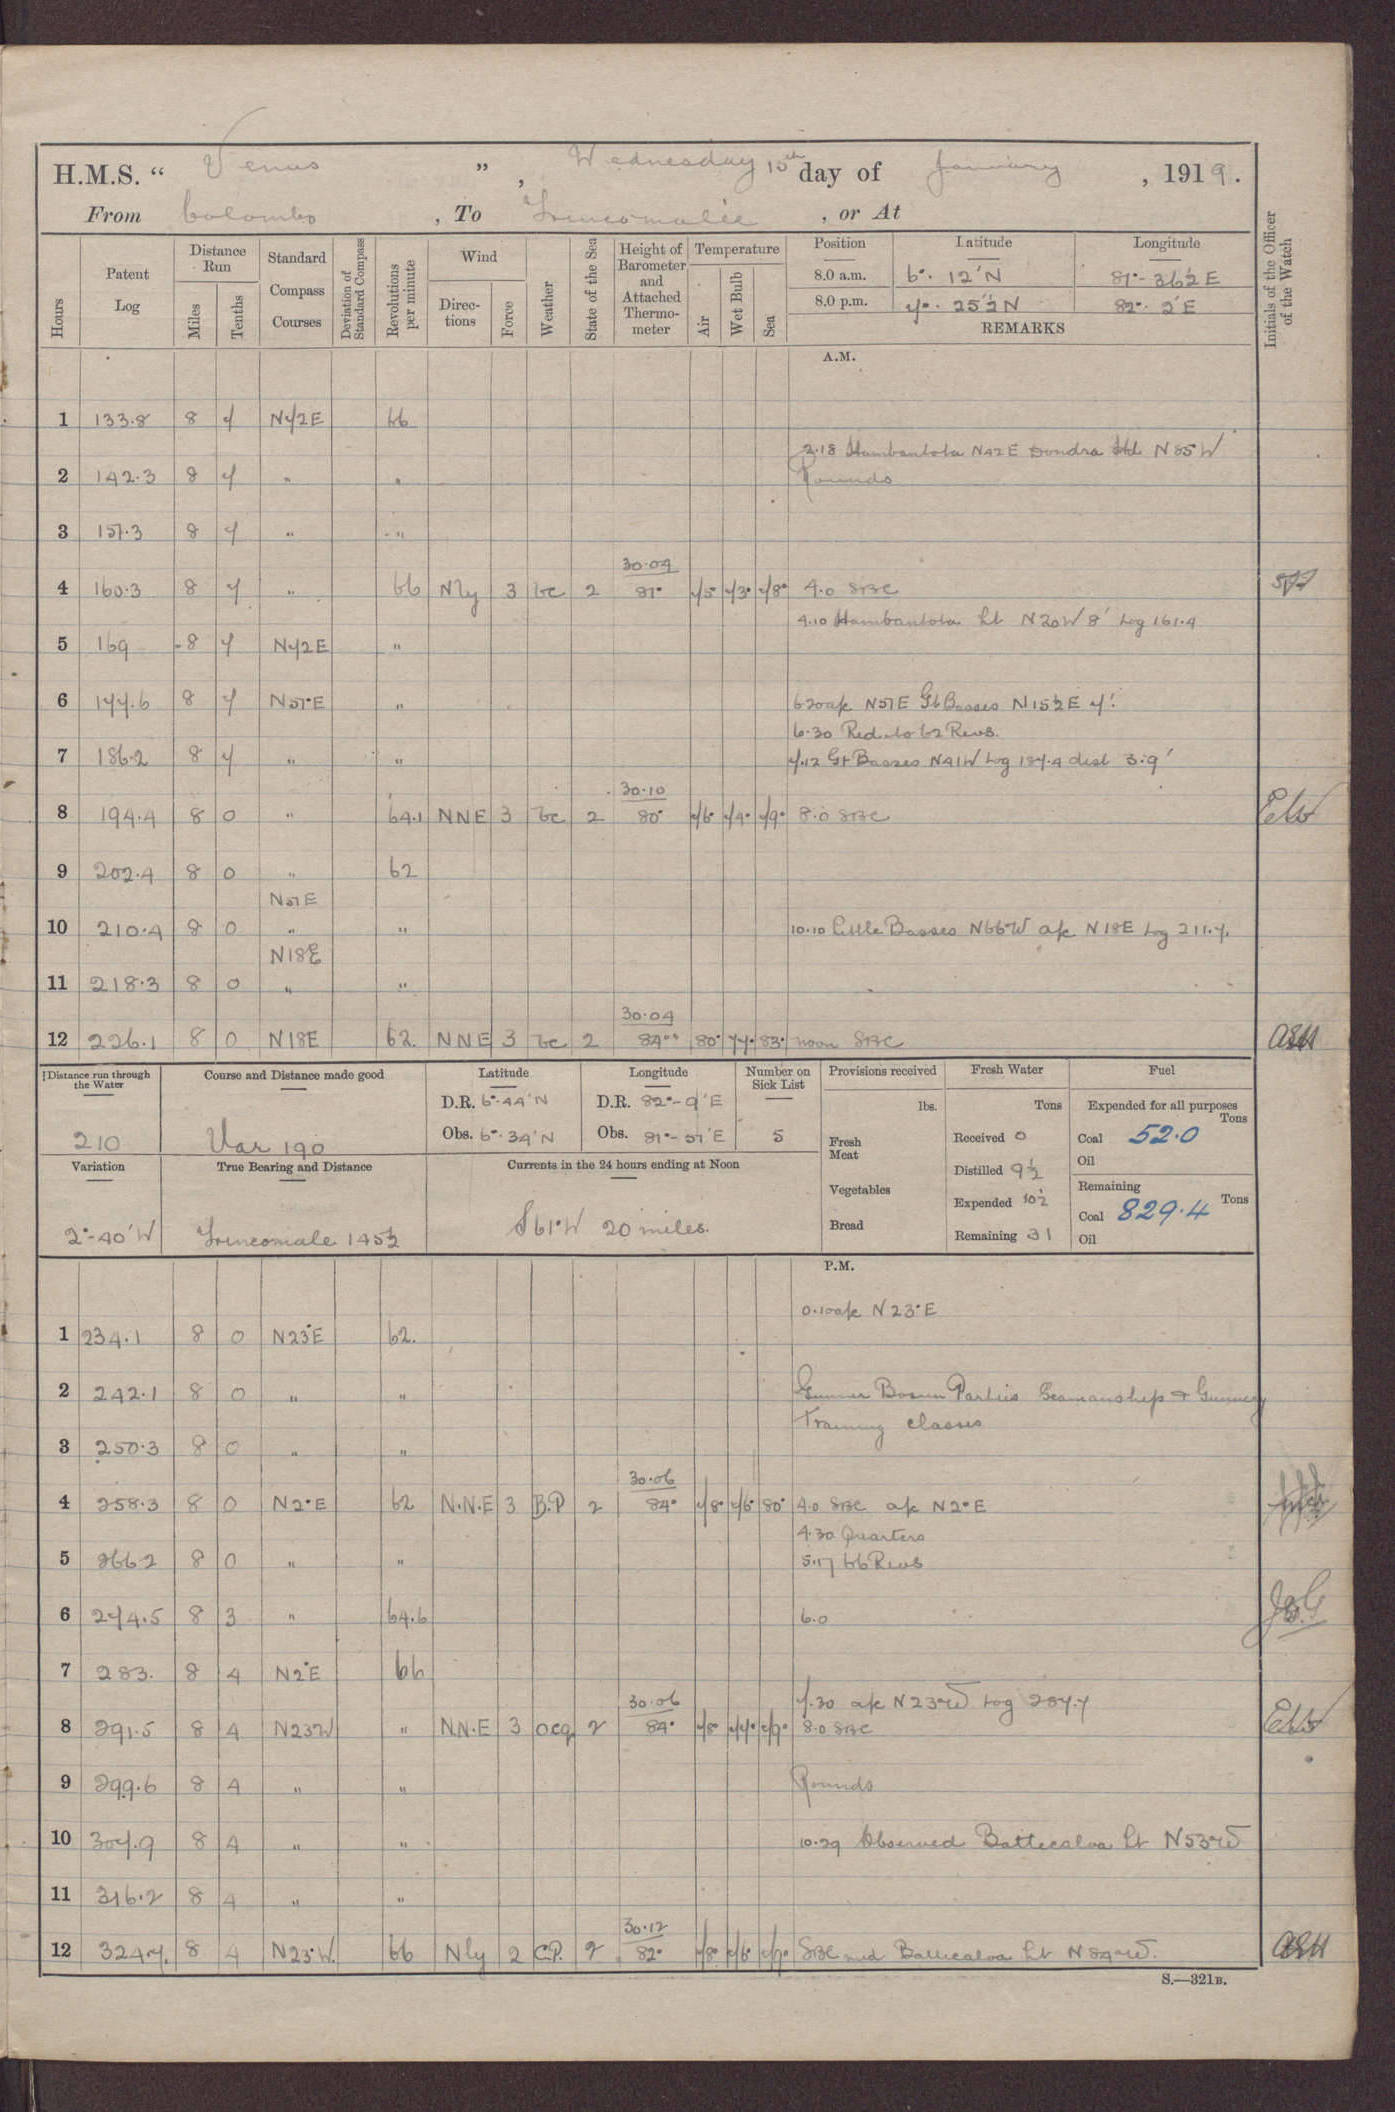 H.M.S. “ Venus ” , Wednesday 15th day of January , 1919.
From Colombo , To Trincomalee , or At
Hours
Patent Log
Distance Run
Miles
Tenths
Standard Compass Courses
Deviation of Standard Compass
Revolutions per minute
Wind
Direc-tions
Force
Weather
State of the Sea
Height of Barometer and Attached Thermo-meter
Temperature
Air
Wet Bulb
Sea
Position Latitude Longitude
8.0 a.m. 6°. 12' N 81°-36½ E
8.0 p.m. 7°. 25½ N 82°. 2' E
REMARKS
Initials of the Officer of the Watch
A.M.
1 133.8 8 7 N72E 66
2.18 Hambantota N42E Dondra Hd N85W
2 142.3 8 7 " " Rounds
3 151.3 8 7 " "
30.04
4 160.3 8 7 " 66 Nly 3 bc 2 81° 75° 73° 78° 4.0 SBC
4.10 Hambantota Lt N20W 8' Log 161.4
5 169 8 7 N72E "
6 177.6 8 7 N51°E " 6.20 a/c N51E Gt Basses N15½E 7'
6.30 Red. to 62 Revs.
7 186.2 8 7 " " 7.12 Gt Basses N41W Log 187.4 dist 3.9'
30.10
8 194.4 8 0 " 64.1 NNE 3 bc 2 80° 76° 74° 79° 8.0 SBC
9 202.4 8 0 " 62
N51E
10 210.4 8 0 " " 10.10 Little Basses N66°W a/c N18E Log 211.7.
N18E
11 218.3 8 0 " "
30.04
12 226.1 8 0 N18E 62. NNE 3 bc 2 84° 80° 77° 83° noon SBC ASH
Distance run through the Water
210
Course and Distance made good
Var 190
Latitude
D.R. 6°-44' N
Obs. 6°. 34' N
Longitude
D.R. 82°-9' E
Obs. 81°-57' E
Number on Sick List
5
Variation
2°-40' W
True Bearing and Distance
Trincomale 145½
Currents in the 24 hours ending at Noon
S61°W 20 miles.
Provisions received
lbs.
Fresh Meat
Vegetables
Bread
Fresh Water
Tons
Received 0
Distilled 9½
Expended 10½
Remaining 31
Fuel
Expended for all purposes
Tons
Coal 52.0
Oil
Remaining
Coal 829.4 Tons
Oil
P.M.
0.10 a/c N23°E
1 234.1 8 0 N23°E 62.
2 242.1 8 0 " " Gunner Bosun Parties Seamanship & Gunnery
Training classes
3 250.3 8 0 " "
30.06
4 258.3 8 0 N2°E 62 N.N.E 3 B.P 2 84° 78° 76° 80° 4.0 SBC a/c N2°E
4.30 Quarters
5 266.2 8 0 " " 5.17 66 Revs
6 274.5 8 3 " 64.6 6.0
7 283. 8 4 N2°E 66
30.06 7.30 a/c N23°W Log 287.7
8 291.5 8 4 N23W " N.N.E 3 ocq 2 84° 78° 77° 79° 8.0 SBC
9 299.6 8 4 " " Rounds
10 307.9 8 4 " " 10.29 Observed Batticaloa Lt N53°W
11 316.2 8 4 " "
30.12
12 324.7. 8 4 N23°W. 66 Nly 2 C.P. 2 82° 78° 76° 79° SBC mid Batticaloa Lt N84°W. ASH
S.—321B.